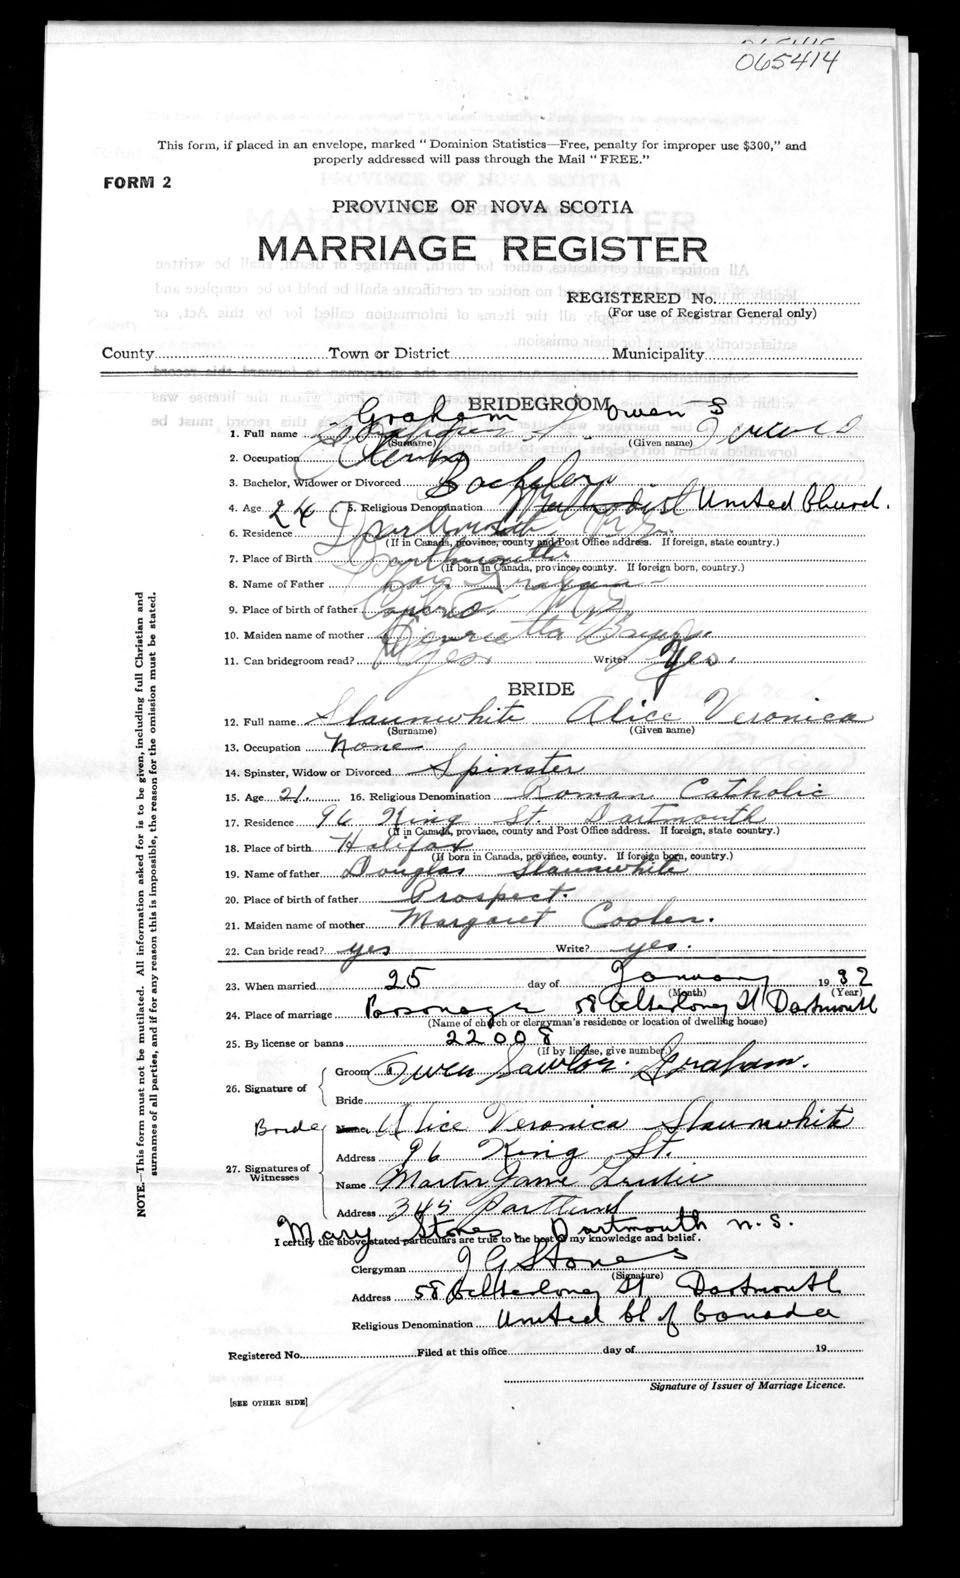 065414
This form, if placed in an envelope, marked "Dominion Statistics—Free, penalty for improper use $300," and
properly addressed will pass through the Mail "FREE."
FORM 2
PROVINCE OF NOVA SCOTIA
MARRIAGE REGISTER
REGISTERED No.
(For use of Registrar General only)
County Town or District Municipality
BRIDEGROOM
Graham Owen S
1. Full name
(Surname) (Given name)
2. Occupation Clerk
3. Bachelor, Widower or Divorced Bachelor
4. Age 24 5. Religious Denomination Methodist United Church.
6. Residence Dartmouth N.S.
(If in Canada, province, county and Post Office address. If foreign, state country.)
7. Place of Birth Dartmouth
(If born in Canada, province, county. If foreign born, country.)
8. Name of Father Graham
9. Place of birth of father N.S.
10. Maiden name of mother Henrietta
11. Can bridegroom read? Yes. Write? Yes.
BRIDE
12. Full name Slaunwhite Alice Veronica
(Surname) (Given name)
13. Occupation None
14. Spinster, Widow or Divorced Spinster
15. Age 21. 16. Religious Denomination Roman Catholic
17. Residence 96 King St Dartmouth
(If in Canada, province, county and Post Office address. If foreign, state country.)
18. Place of birth Halifax
(If born in Canada, province, county. If foreign born, country.)
19. Name of father Douglas Slaunwhite
20. Place of birth of father Prospect.
21. Maiden name of mother Margaret Coolen.
22. Can bride read? yes Write? yes.
23. When married 25 day of January 1932
(Month) (Year)
24. Place of marriage Parsonage 58 St Dartmouth
(Name of church or clergyman's residence or location of dwelling house)
25. By license or banns 22008
(If by license, give number.)
26. Signature of Groom Owen Graham.
Bride
Bride Name Alice Veronica Slaunwhite
Address 96 King St.
27. Signatures of Witnesses
Name
Address 345 Portland
Mary Stones Dartmouth N.S.
I certify the above stated particulars are true to the best of my knowledge and belief.
Clergyman J G Stones
(Signature)
Address 58 St Dartmouth
Religious Denomination United Ch of Canada
Registered No. Filed at this office day of 19
Signature of Issuer of Marriage Licence.
[SEE OTHER SIDE]
NOTE.—This form must not be mutilated. All information asked for is to be given, including full Christian and
surnames of all parties, and if for any reason this is impossible, the reason for the omission must be stated.